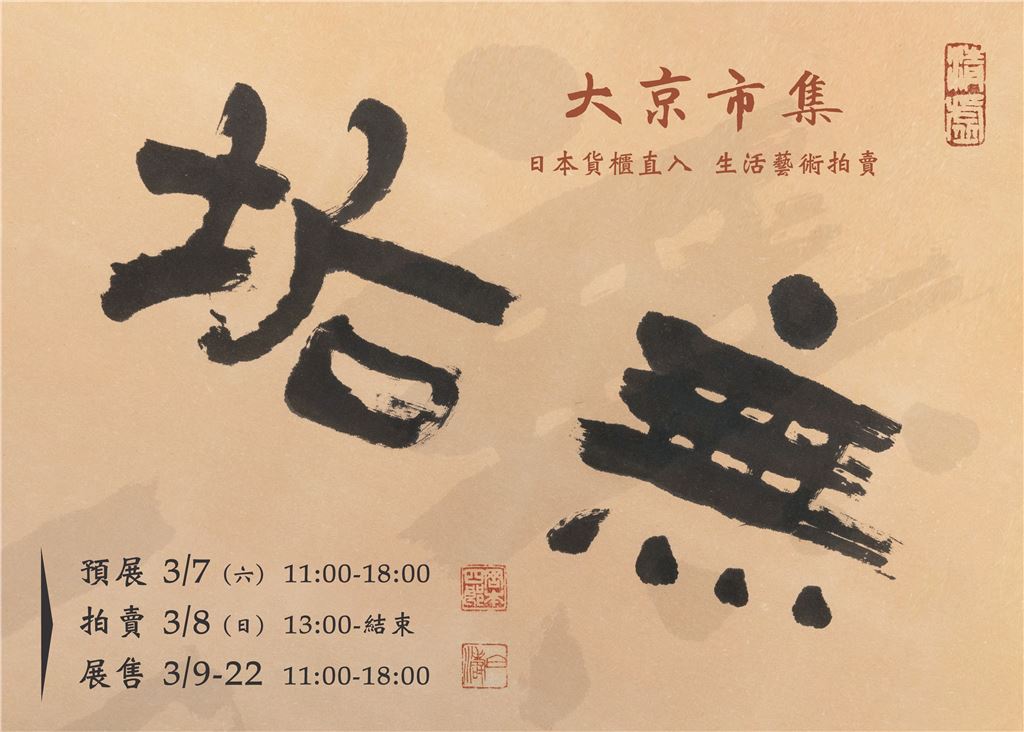 大京市集
日本貨櫃直入 生活藝術拍賣
無
預展 3/7（六） 11:00-18:00
拍賣 3/8（日） 13:00-結束
展售 3/9-22 11:00-18:00